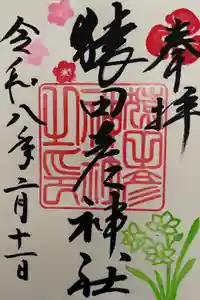 奉拝
猿田彦神社
令和八年二月十一日